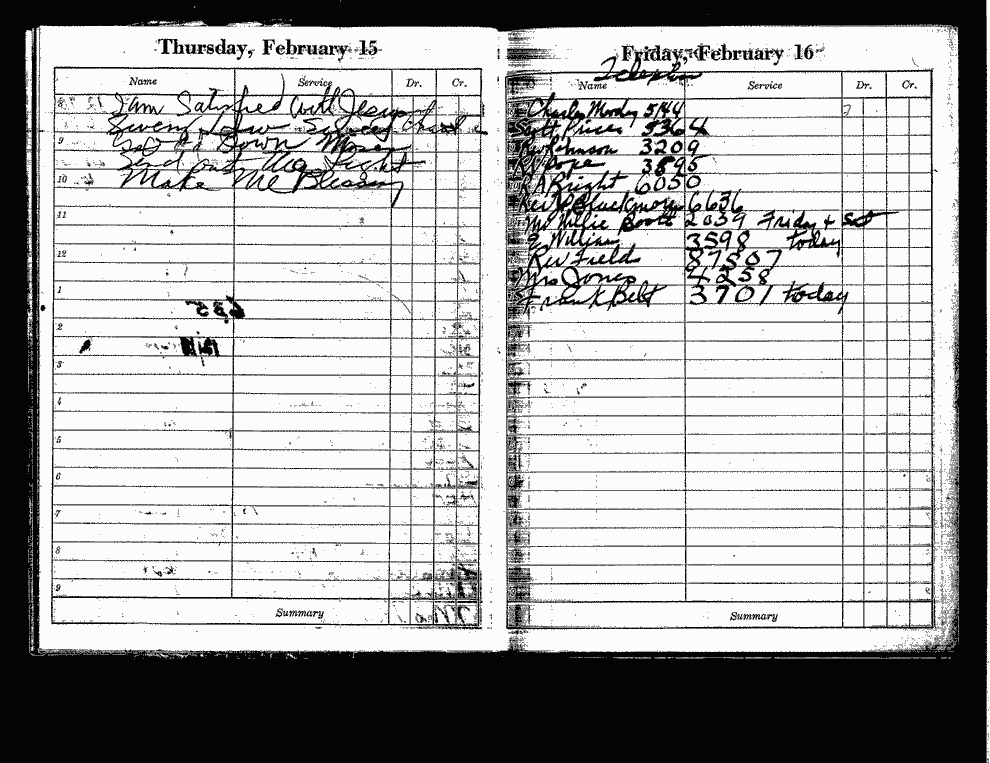 Thursday, February 15
Name Service Dr. Cr.
I am Satisfied With Jesus
9
Down Moses
Send out the Light
10
Make Me Blessing
11
12
1
2
3
4
5
6
7
8
9
Summary
Friday, February 16
Name Service Dr. Cr.
Charles Moody 5144
Scott Prices 5364
Rev Johnson 3209
Pope 3895
R A Bright 6050
Rev Blackmore 6636
Mr Willie Boott 2039 Friday + Sat
E William 3598 today
Rev Fields 87507
Mrs Jones 4258
Frank Belt 3701 today
Summary